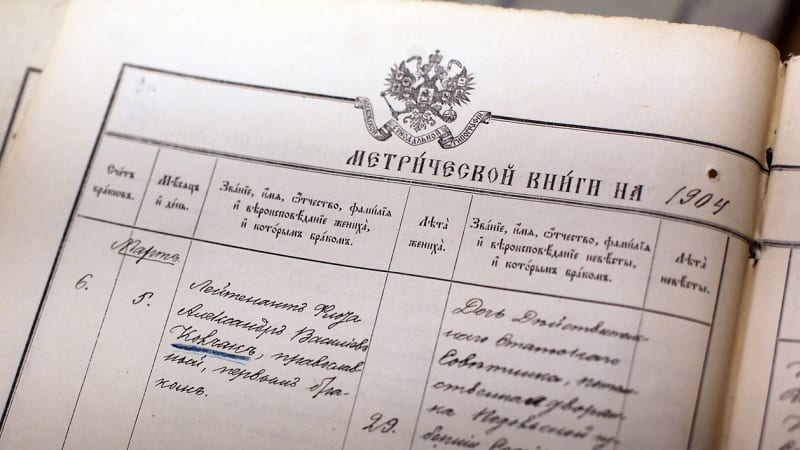 Сѷнодальной типографіи
МЕТРИ́ЧЕСКОЙ КНИ́ГИ НА 1904
Счетъ
браковъ.
Мѣсяцъ
и҆ день.
Зва́нїе, и҆́мя, ѻ҆́тчество, фамилїѧ
и҆ вѣроисповѣ́данїе жениха̀,
и҆ кото́рымъ бра́комъ.
Лѣ́та
жениха̀.
Зва́нїе, и҆́мя, ѻ҆́тчество, фамилїѧ
и҆ вѣроисповѣ́данїе невѣ́сты,
и҆ кото́рымъ бра́комъ.
Лѣ́та
невѣ́сты.
Мартъ.
6.
5.
Лейтенантъ Флота
Александръ Василіевъ
Колчакъ, православ-
ный, первымъ бра-
комъ.
29.
Дочь Дѣйствитель-
наго Статскаго
Совѣтника, потом-
ственная дворян-
ка Подольской гу-
берніи